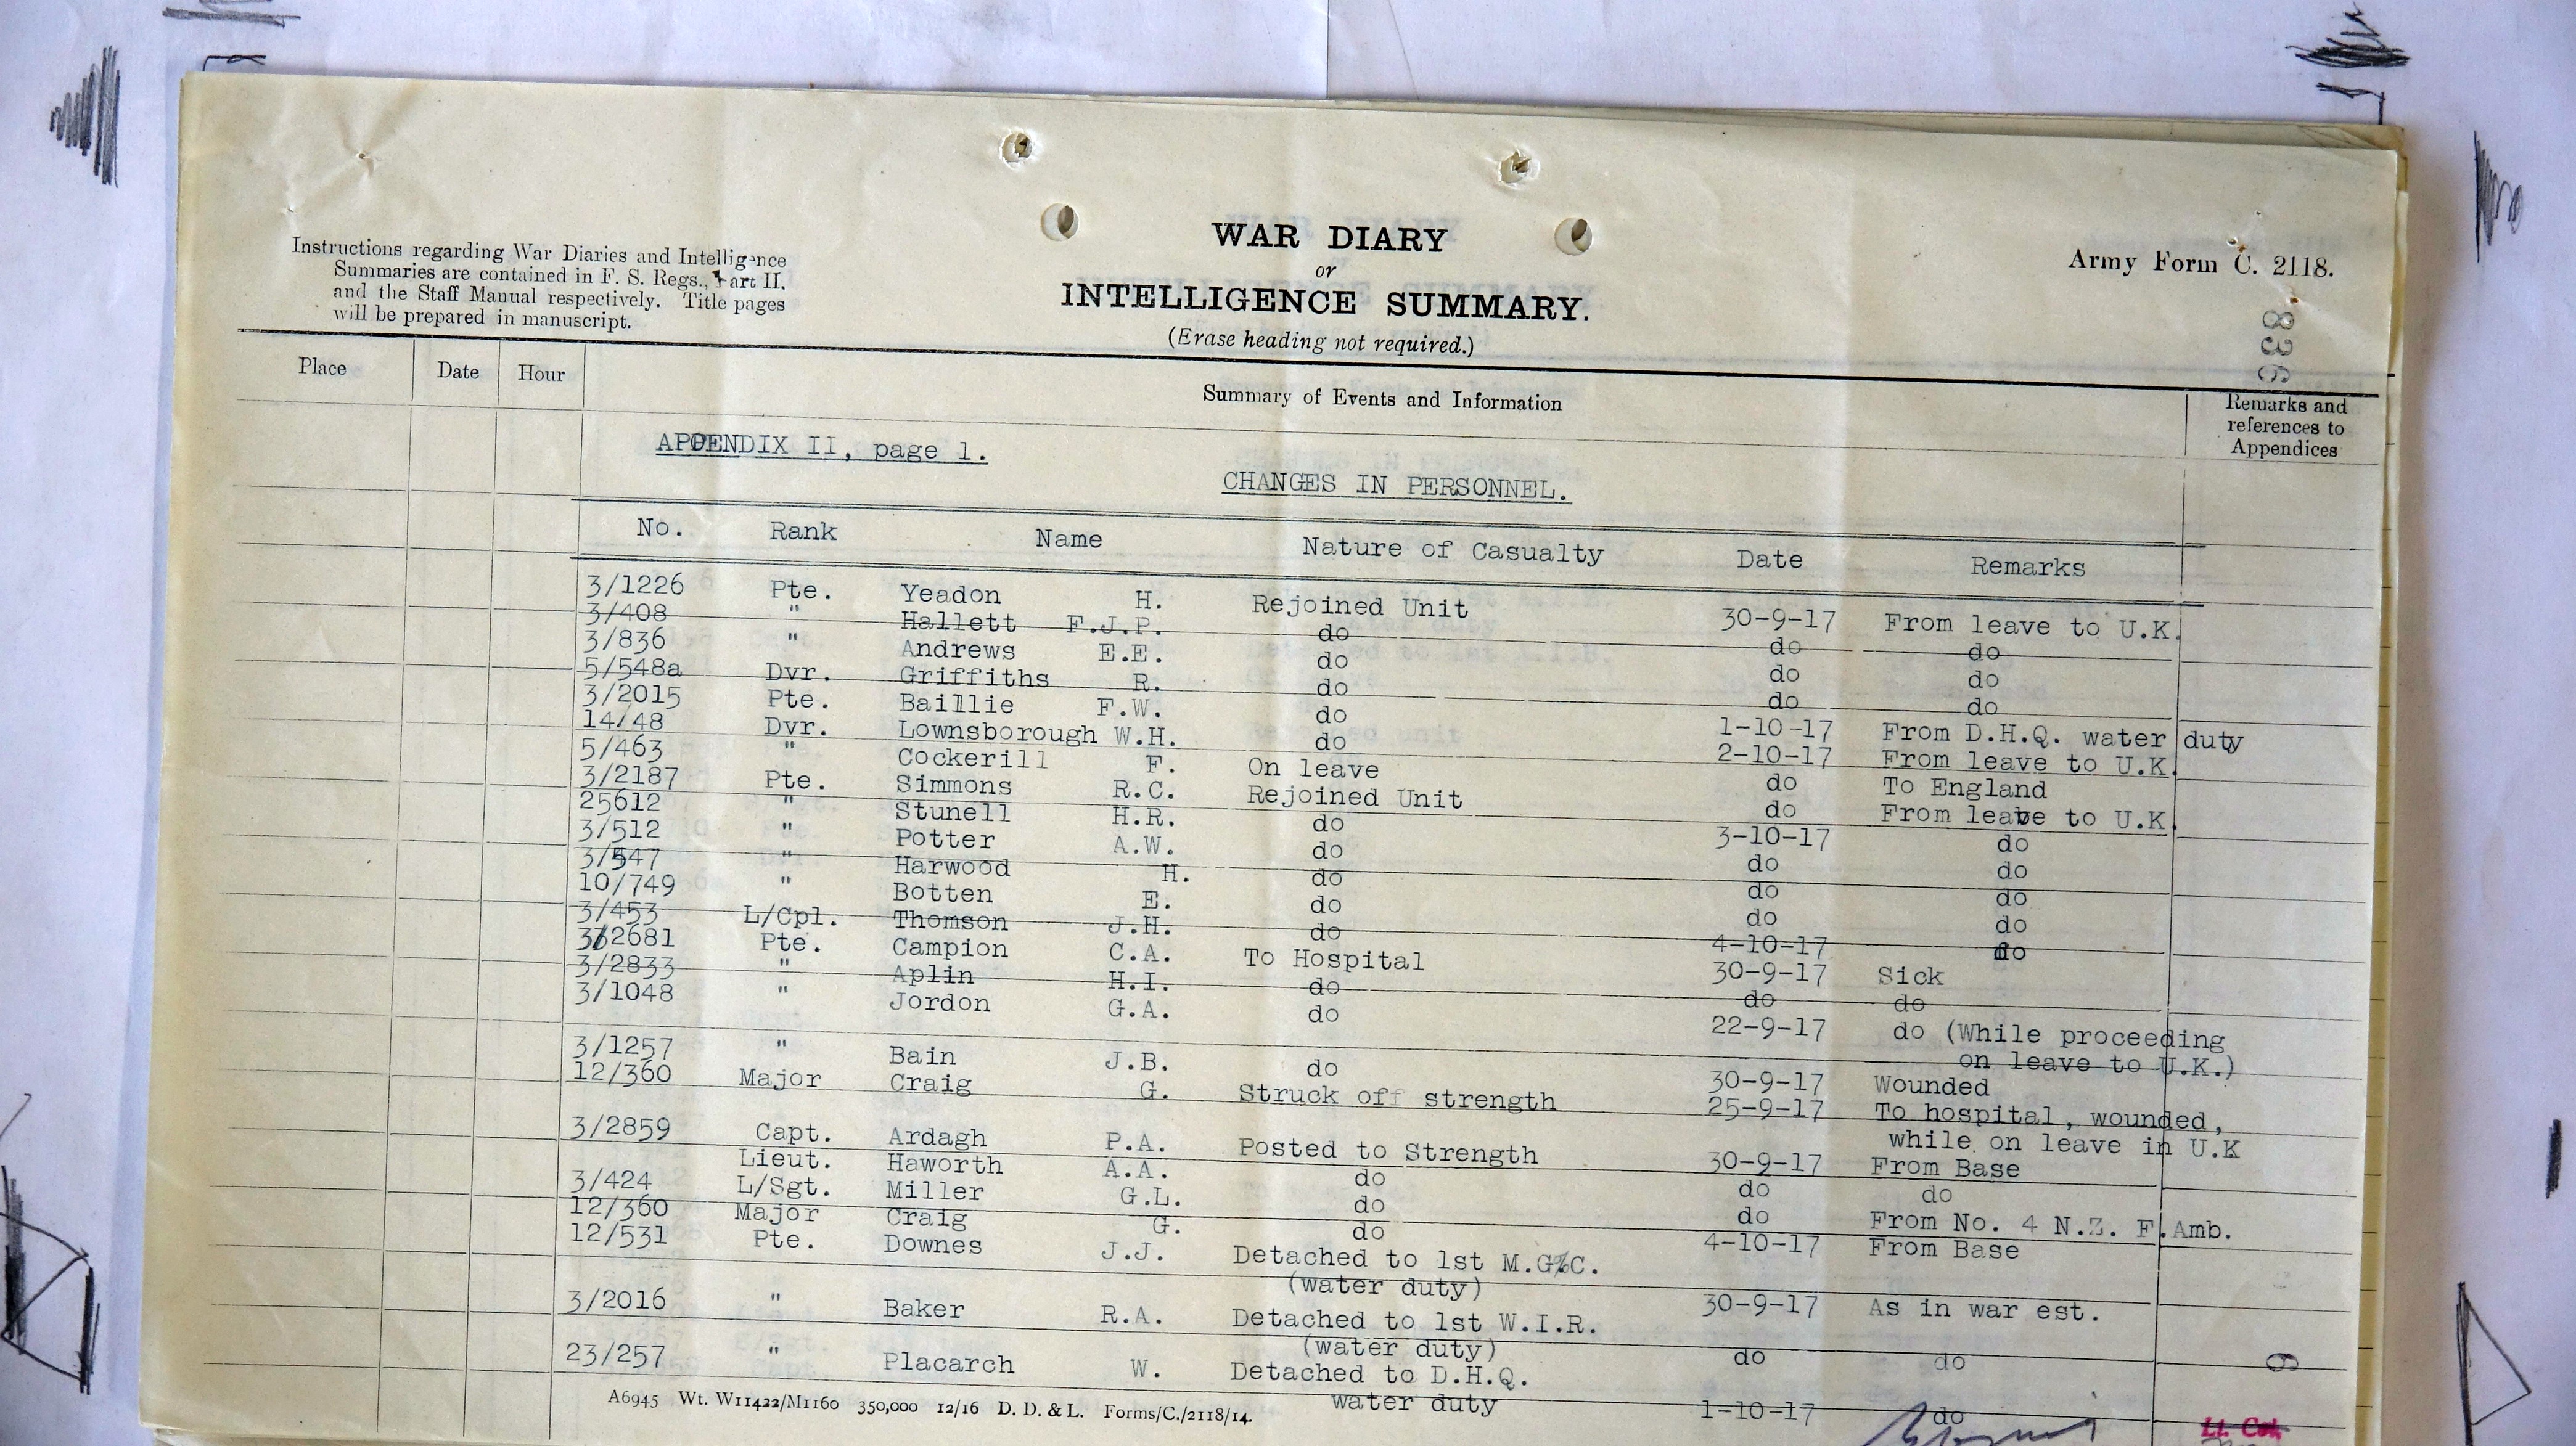 Instructions regarding War Diaries and Intelligence
Summaries are contained in F. S. Regs., Part II.
and the Staff Manual respectively. Title pages
will be prepared in manuscript.
WAR DIARY
or
INTELLIGENCE SUMMARY.
(Erase heading not required.)
Army Form C. 2118.
836
Place Date Hour Summary of Events and Information Remarks and
references to
Appendices
APPENDIX II, page 1.
CHANGES IN PERSONNEL.
No. Rank Name Nature of Casualty Date Remarks
3/1226 Pte. Yeadon H. Rejoined Unit 30-9-17 From leave to U.K.
3/408 " Hallett F.J.P. do do do
3/836 " Andrews E.E. do do do
5/548a Dvr. Griffiths R. do do do
3/2015 Pte. Baillie F.W. do 1-10-17 From D.H.Q. water duty
14/48 Dvr. Lownsborough W.H. do 2-10-17 From leave to U.K.
5/463 " Cockerill F. On leave do To England
3/2187 Pte. Simmons R.C. Rejoined Unit do From leave to U.K.
25612 " Stunell H.R. do 3-10-17 do
3/512 " Potter A.W. do do do
3/547 " Harwood H. do do do
10/749 " Botten E. do do do
3/453 L/Cpl. Thomson J.H. do 4-10-17 do
3/2681 Pte. Campion C.A. To Hospital 30-9-17 Sick
3/2833 " Aplin H.I. do do do
3/1048 " Jordon G.A. do 22-9-17 do (While proceeding
on leave to U.K.)
3/1257 " Bain J.B. do 30-9-17 Wounded
12/360 Major Craig G. Struck off strength 25-9-17 To hospital, wounded,
while on leave in U.K
3/2859 Capt. Ardagh P.A. Posted to Strength 30-9-17 From Base
Lieut. Haworth A.A. do do do
3/424 L/Sgt. Miller G.L. do do From No. 4 N.Z. F.Amb.
12/360 Major Craig G. do 4-10-17 From Base
12/531 Pte. Downes J.J. Detached to 1st M.G.C.
(water duty) 30-9-17 As in war est.
3/2016 " Baker R.A. Detached to 1st W.I.R.
(water duty) do do
23/257 " Placarch W. Detached to D.H.Q.
water duty 1-10-17 do
6
A6945 Wt. W11422/M1160 350,000 12/16 D. D. & L. Forms/C./2118/14.
Lt. Col.